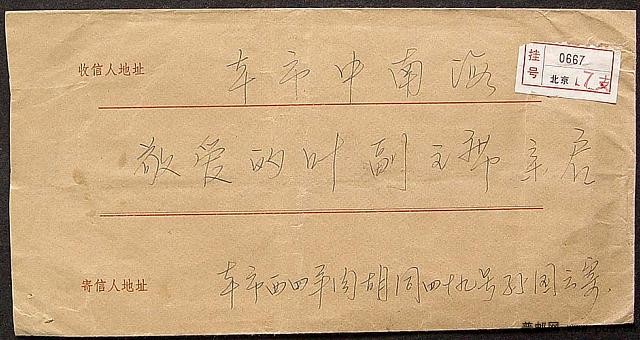 收信人地址 本市中南海
挂号 0667
北京 L 7 支
敬爱的叶副主席亲启
寄信人地址 本市西四羊肉胡同四十九号孙国云寄